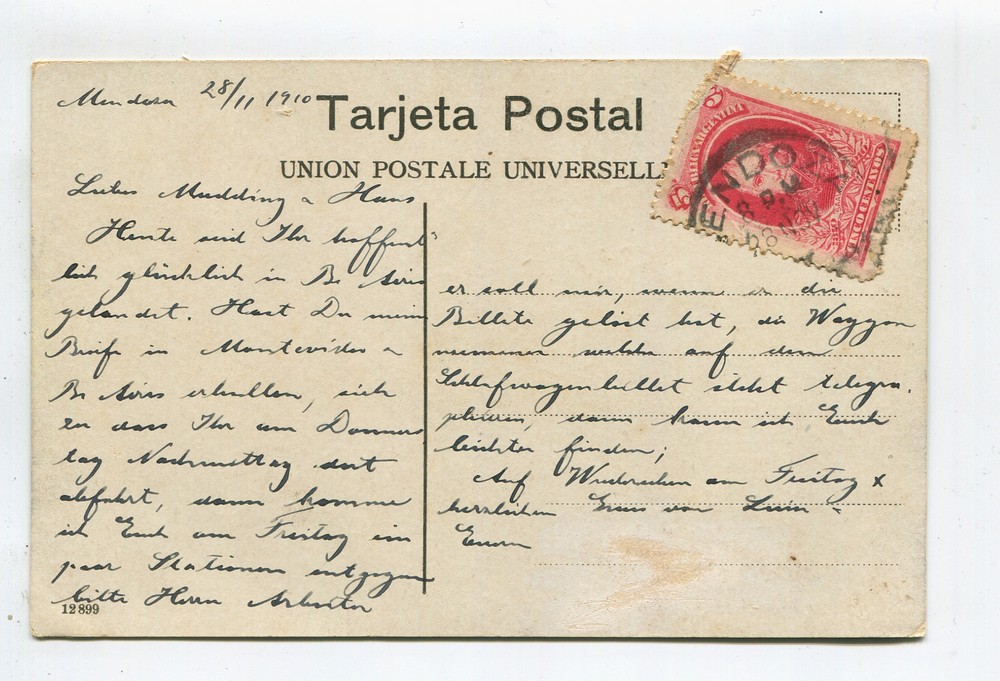 Mendoza 28/11 1910
Tarjeta Postal
UNION POSTALE UNIVERSELL
REPUBLICA ARGENTINA
CINCO CENTAVOS
5
5
ENDOZA
28 NOV
Liebes Mudding & Hans
Heute seid Ihr hoffent
lich glücklich in Bs Aires
gelandet. Hast Du meine
Briefe in Montevideo &
Bs Aires erhalten, sieh
zu dass Ihr am Donners
tag Nachmittag dort
abfahrt, dann komme
ich Euch am Freitag ein
paar Stationen entgegen
bitte Herrn
12899
er soll mir, wenn er die
Billete gelöst hat, die Waggon
nummer welche auf dem
Schlafwagenbillet steht telegra.
phieren, dann kann ich Euch
leichter finden;
Auf Wiedersehen am Freitag &
herzlichen Gruss von
Eurem